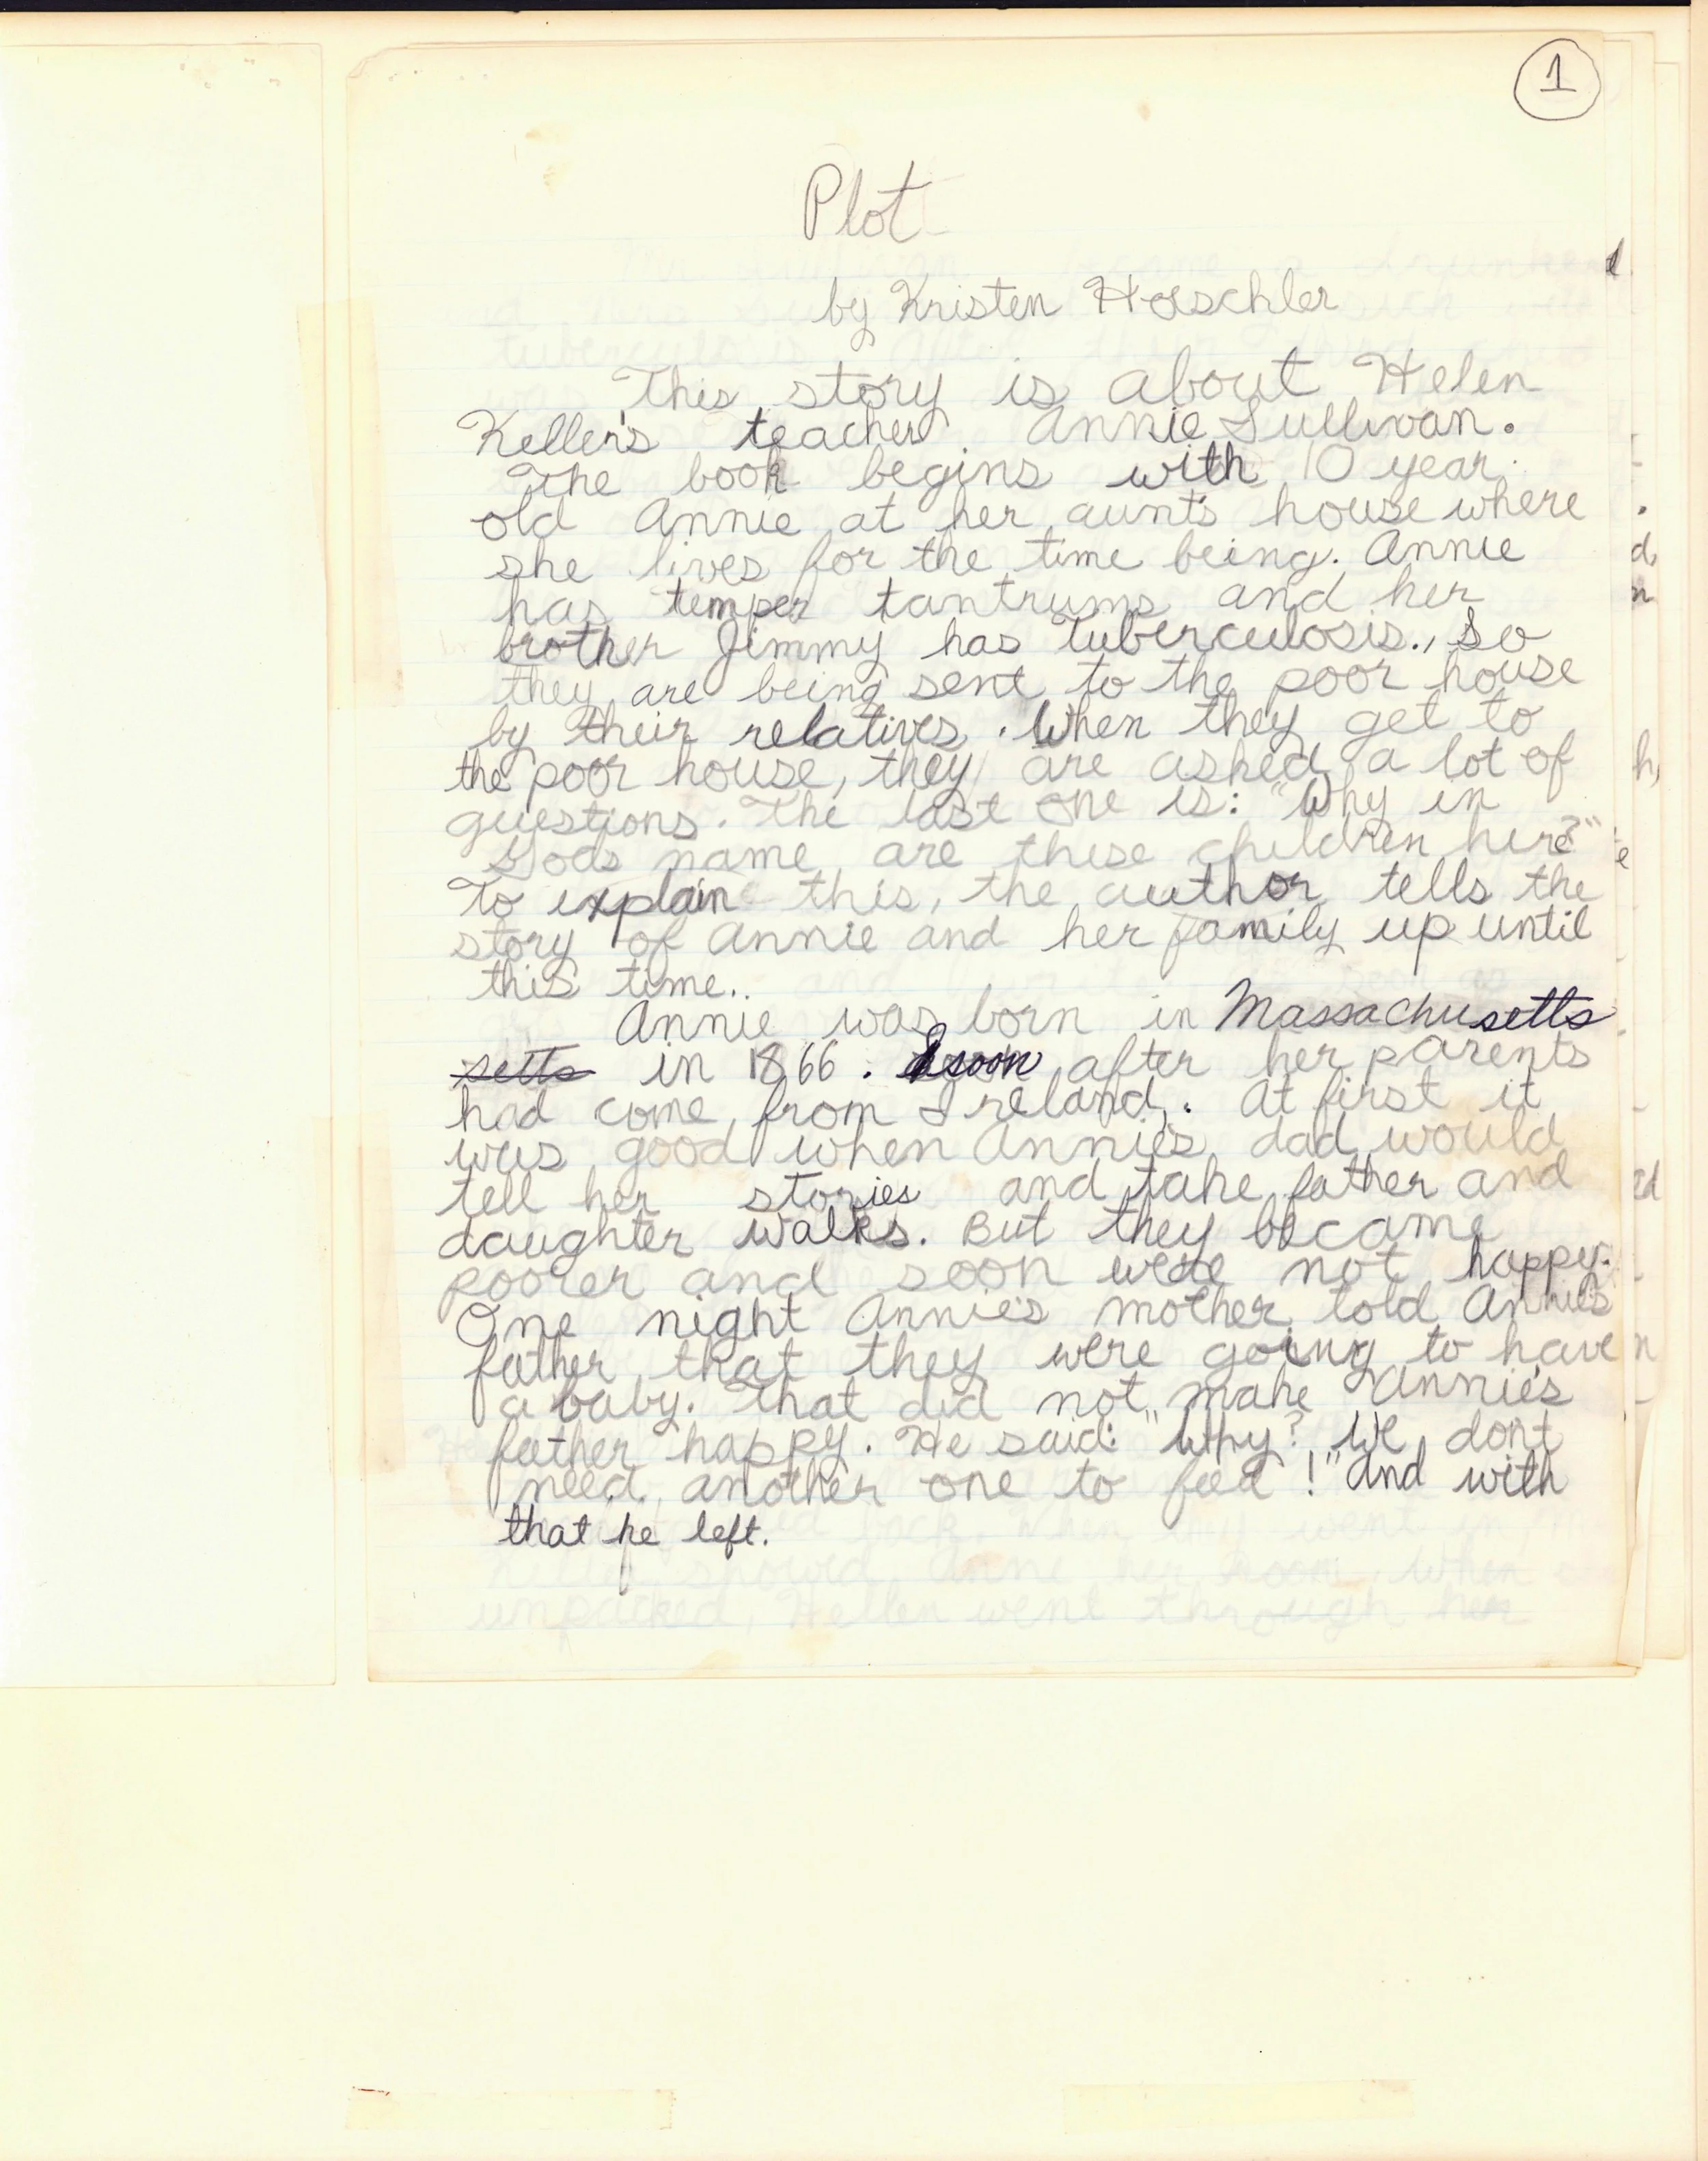 1
Plot
by Kristen Hoeschler
This story is about Helen
Keller's teacher Annie Sullivan.
The book begins with 10 year
old Annie at her aunt's house where
she lives for the time being. Annie
has temper tantrums and her
brother Jimmy has tuberculosis., so
they are being sent to the poor house
by their relatives. When they get to
the poor house, they are asked a lot of
questions. The last one is: "Why in
Gods name are these children here?"
To explain this, the author tells the
story of Annie and her family up until
this time..
Annie was born in Massachusetts
setts in 1866. soon after her parents
had come from Ireland,. At first it
was good when Annie's dad would
tell her stories and take father and
daughter walks. But they became
poorer and soon were not happy.
One night Annie's mother told Annie's
father that they were going to have
a baby. That did not make Annie's
father happy. He said: "Why? We don't
need another one to feed!" and with
that he left.